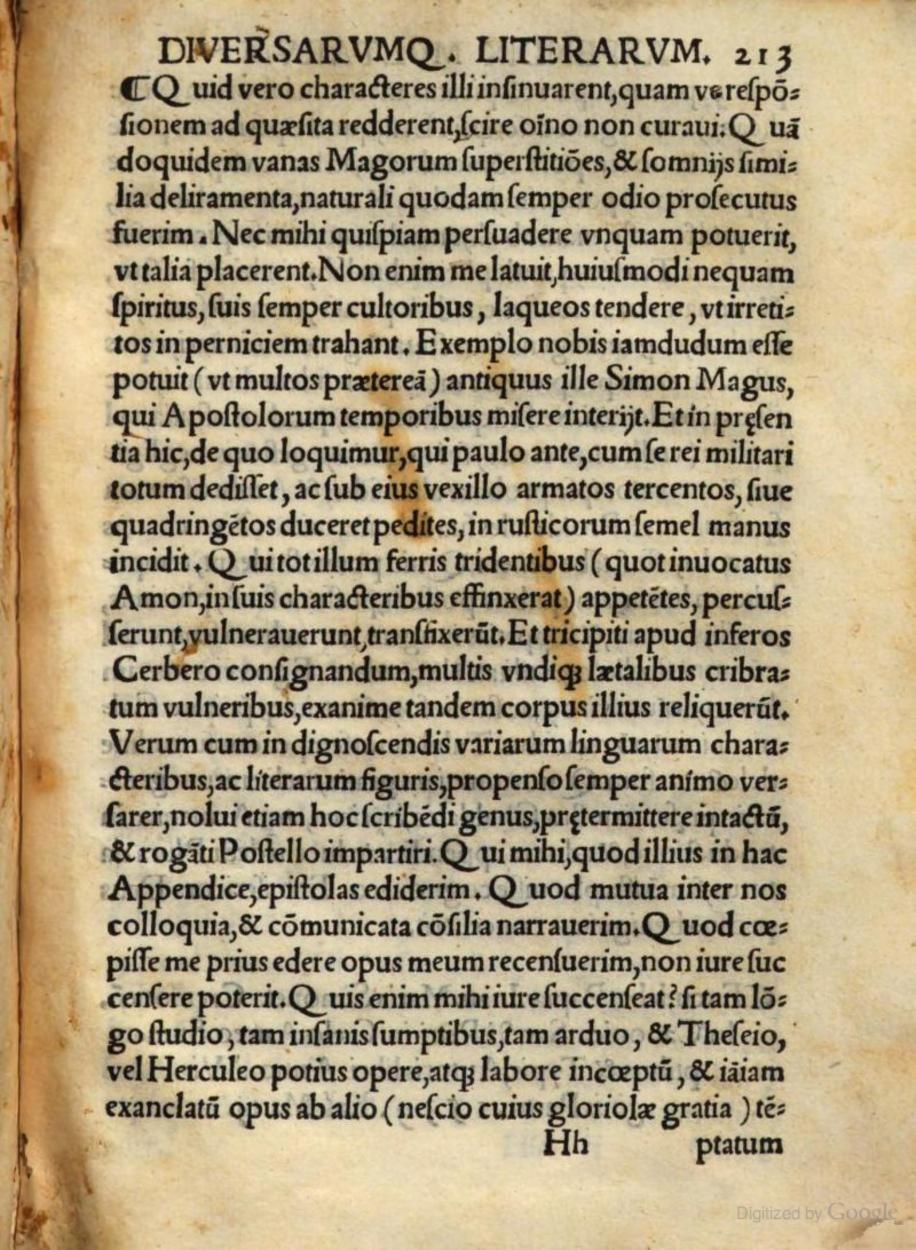 DIVERSARVMQ. LITERARVM. 213
¶Quid vero characteres illi inſinuarent,quam ve reſpõ-
ſionem ad quæſita redderent,ſcire oĩno non curaui.Quã
doquidem vanas Magorum ſuperſtitiões,& ſomnijs ſimi-
lia deliramenta,naturali quodam ſemper odio proſecutus
fuerim. Nec mihi quiſpiam perſuadere vnquam potuerit,
vt talia placerent.Non enim me latuit,huiuſmodi nequam
ſpiritus, ſuis ſemper cultoribus, laqueos tendere, vt irreti-
tos in perniciem trahant. Exemplo nobis iamdudum eſſe
potuit (vt multos prætereã) antiquus ille Simon Magus,
qui Apoſtolorum temporibus miſere interijt.Et in pręſen
tia hic,de quo loquimur,qui paulo ante,cum ſe rei militari
totum dediſſet, ac ſub eius vexillo armatos tercentos, ſiue
quadringẽtos duceret pedites, in ruſticorum ſemel manus
incidit. Qui tot illum ferris tridentibus (quot inuocatus
Amon,in ſuis characteribus effinxerat) appetẽtes, percuſ-
ſerunt,vulnerauerunt,transfixerũt.Et tricipiti apud inferos
Cerbero conſignandum,multis vndiqꝫ lætalibus cribra-
tum vulneribus,exanime tandem corpus illius reliquerũt.
Verum cum in dignoſcendis variarum linguarum chara-
cteribus,ac literarum figuris,propenſo ſemper animo ver-
ſarer,nolui etiam hoc ſcribẽdi genus,prętermittere intactũ,
& rogãti Poſtello impartiri.Qui mihi,quod illius in hac
Appendice,epiſtolas ediderim. Quod mutua inter nos
colloquia,& cõmunicata cõſilia narrauerim.Quod cœ-
piſſe me prius edere opus meum recenſuerim,non iure ſuc
cenſere poterit.Quis enim mihi iure ſuccenſeat? ſi tam lõ-
go ſtudio, tam inſanis ſumptibus,tam arduo, & Theſeio,
vel Herculeo potius opere,atqꝫ labore incœptũ, & iãiam
exanclatũ opus ab alio (neſcio cuius gloriolæ gratia) tẽ-
Hh ptatum
Digitized by Google